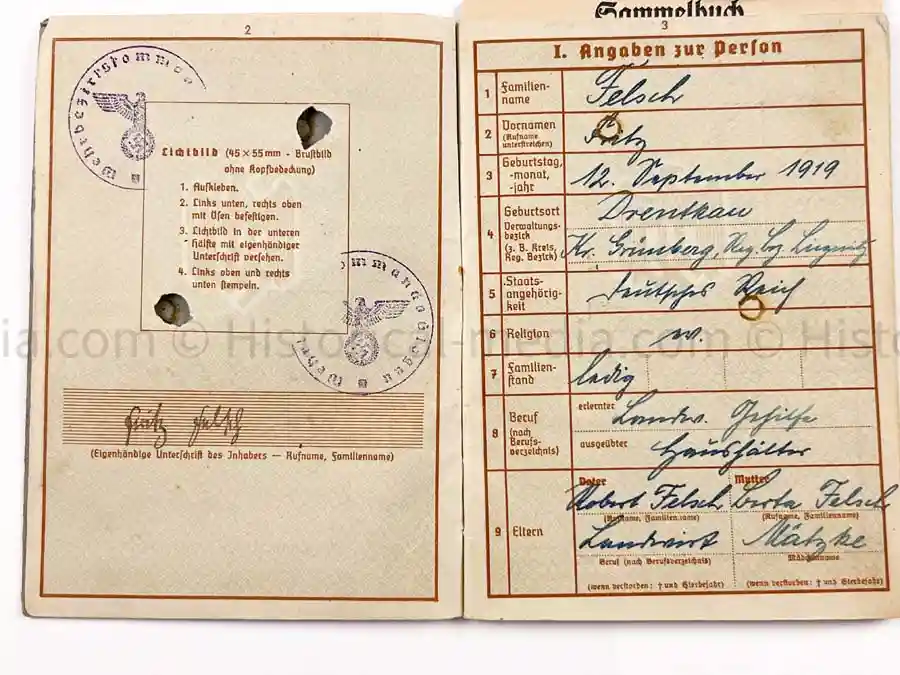 2
Wehrbezirkskommando
Lichtbild (45 × 55 mm - Brustbild
ohne Kopfbedeckung)
1. Aufkleben.
2. Links unten, rechts oben
mit Ösen befestigen.
3. Lichtbild in der unteren
Hälfte mit eigenhändiger
Unterschrift versehen.
4. Links oben und rechts
unten stempeln.
Wehrbezirkskommando Glogau
Fritz Felsch
(Eigenhändige Unterschrift des Inhabers — Rufname, Familienname)
Sammelbuch
3
I. Angaben zur Person
1 Familien-
name
Felsch
2 Vornamen
(Rufname
unterstreichen)
Fritz
3 Geburtstag,
-monat,
-jahr
12. September 1919
4 Geburtsort
Verwaltungs-
bezirk
(z. B. Kreis,
Reg. Bezirk)
Drentkau
Kr. Grünberg, Reg Bez Liegnitz
5 Staats-
angehörig-
keit
Deutsches Reich
6 Religion
ev.
7 Familien-
stand
ledig
8 Beruf
(nach
Berufs-
verzeichnis)
erlernter
Landw. Gehilfe
ausgeübter
Haushälter
9 Eltern
Vater
Mutter
Robert Felsch
Berta Felsch
(Rufname, Familienname)
(Rufname, Familienname)
Landwirt
Mätzke
Beruf (nach Berufsverzeichnis)
Mädchenname
(wenn verstorben: † und Sterbejahr)
(wenn verstorben: † und Sterbejahr)
ia.com © Historical-media.com © Histo